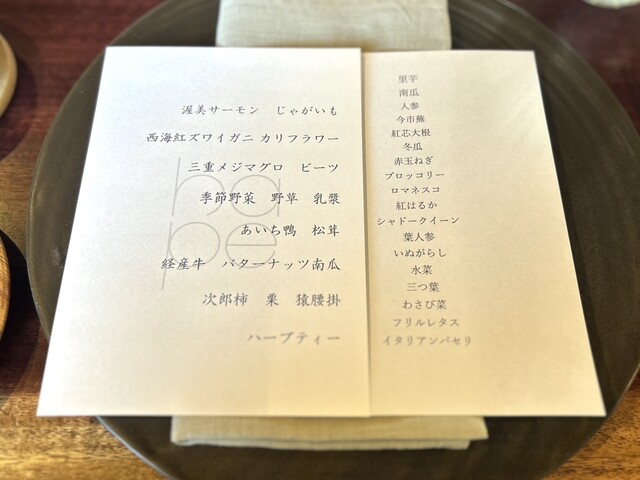 渥美サーモン　じゃがいも
西海紅ズワイガニ カリフラワー
三重メジマグロ　ビーツ
季節野菜　野草　乳漿
あいち鴨　松茸
経産牛　バターナッツ南瓜
次郎柿　栗　猿腰掛
ハーブティー
hape
里芋
南瓜
人参
今市蕪
紅芯大根
冬瓜
赤玉ねぎ
ブロッコリー
ロマネスコ
紅はるか
シャドークイーン
葉人参
いぬがらし
水菜
三つ葉
わさび菜
フリルレタス
イタリアンパセリ